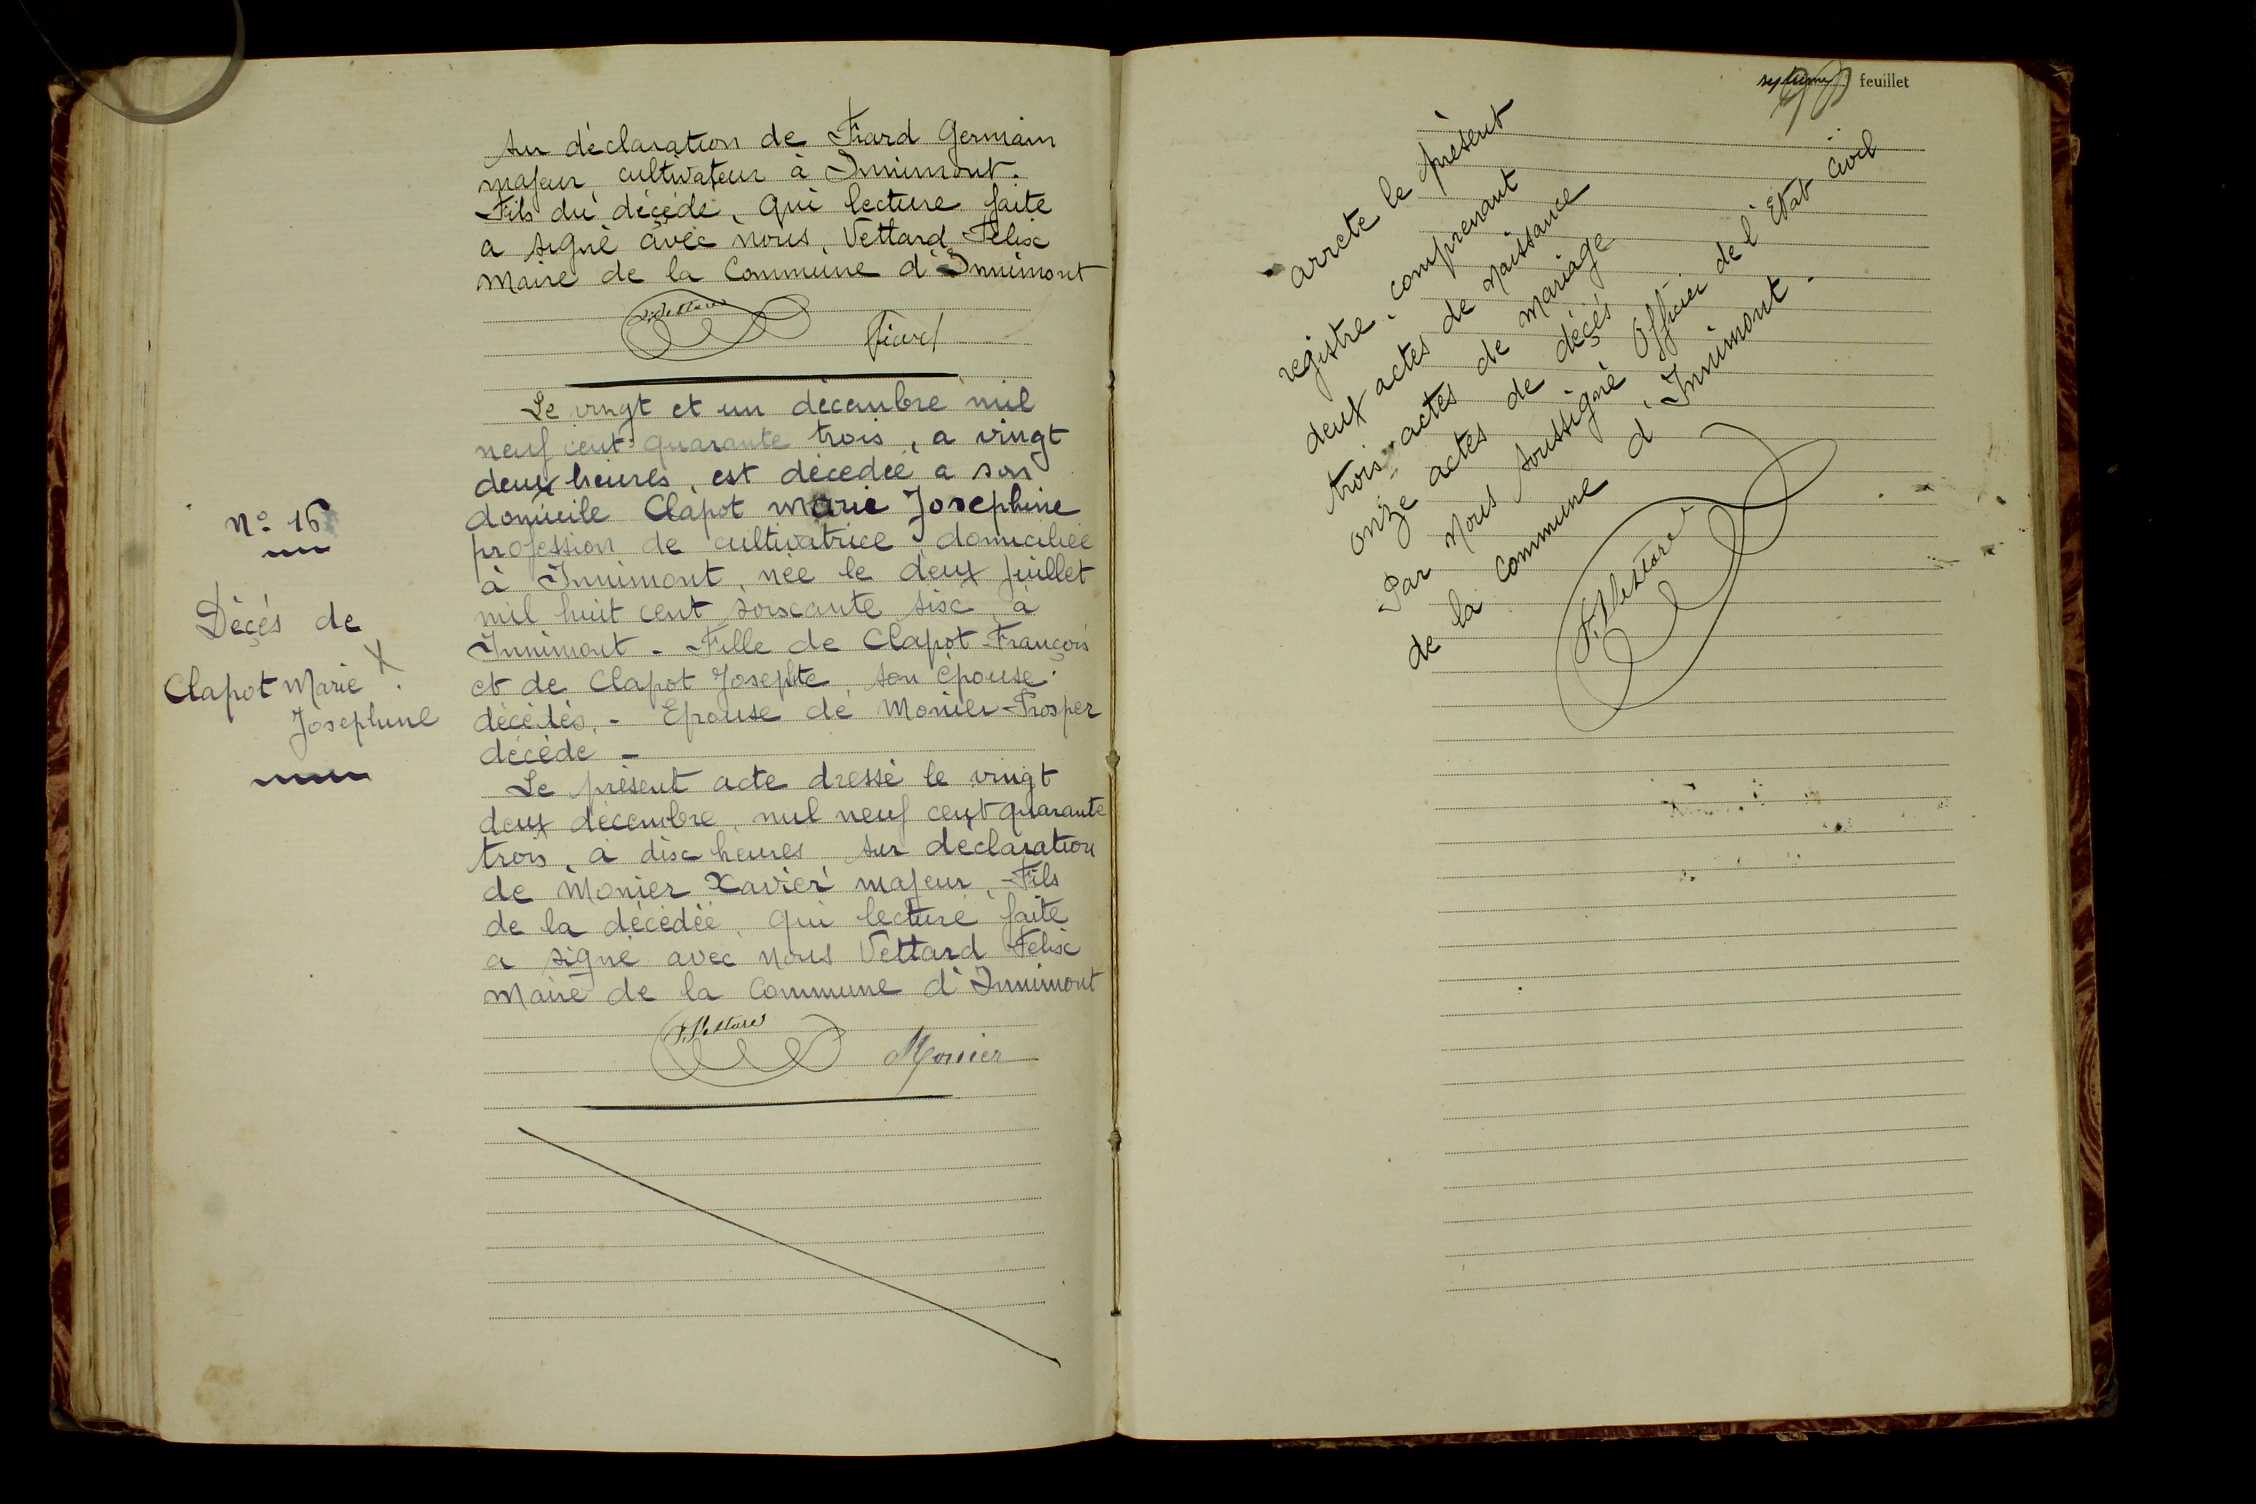 sur déclaration de Fiard Germain
majeur, cultivateur à Innimont.
Fils du décédé, qui lecture faite
a signé avec nous, Vettard Félix
Maire de la Commune d'Innimont
F. Vettard
Fiard
N° 16
Décés de
Clapot Marie X
Josephine
Le vingt et un décembre mil
neuf cent quarante trois, a vingt
deux heures, est décédée a son
domicile Clapot Marie Josephine
profession de cultivatrice domiciliée
à Innimont, née le deux juillet
mil huit cent soixante six à
Innimont - Fille de Clapot François
et de Clapot Josephte son épouse.
décédés. - Epouse de Monier Prosper
décédé -
Le présent acte dressé le vingt
deux décembre, mil neuf cent quarante
trois, à dix heures sur déclaration
de Monier Xavier majeur, Fils
de la décédée, qui lecture faite
a signé avec nous Vettard Félix
Maire de la Commune d'Innimont
F. Vettard
Monier
septième feuillet
arrete le présent
registre, comprenant
deux actes de Naissance
trois actes de Mariage
onze actes de décés
Par Nous soussigné Officier de l'Etat Civil
de la Commune d'Innimont -
F. Vettard